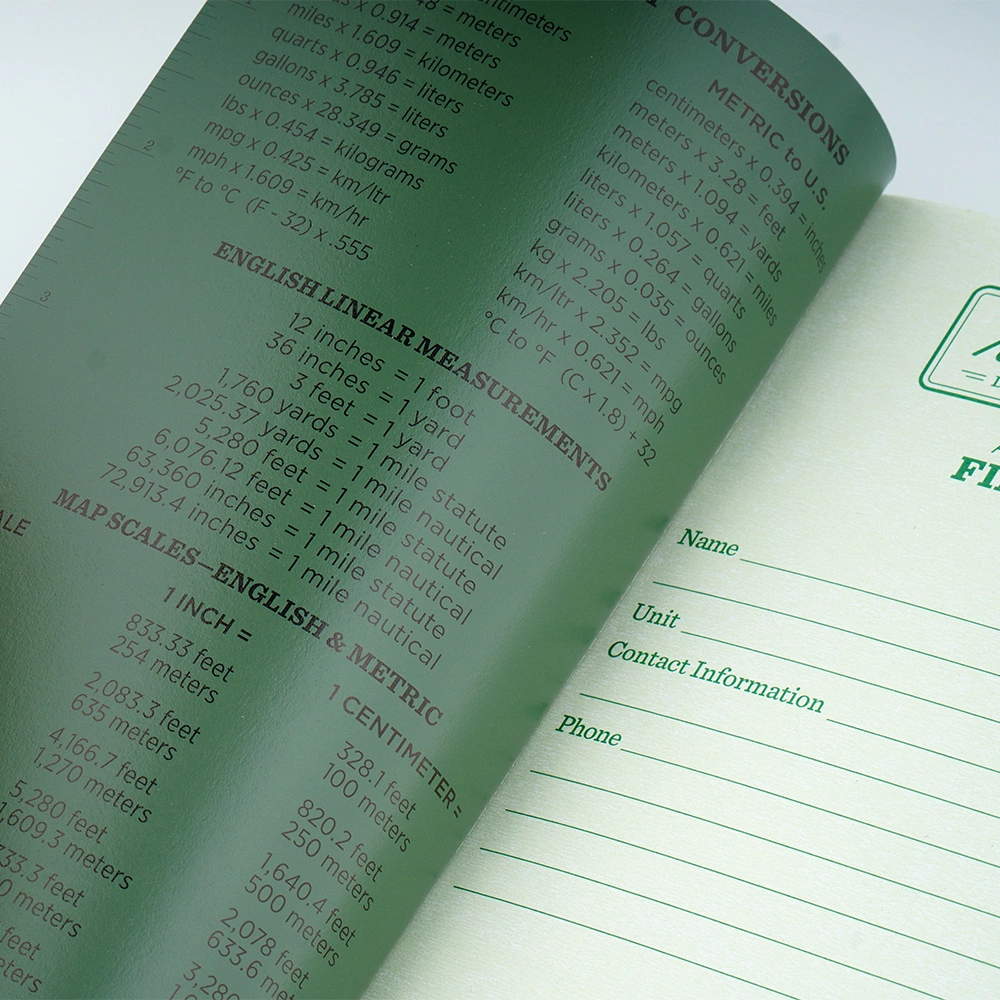 CONVERSIONS
= meters
x 0.914 = meters
miles x 1.609 = kilometers
quarts x 0.946 = liters
gallons x 3.785 = liters
ounces x 28.349 = grams
lbs x 0.454 = kilograms
mpg x 0.425 = km/ltr
mph x 1.609 = km/hr
°F to °C (F - 32) x .555
METRIC to U.S.
centimeters x 0.394 = inches
meters x 3.28 = feet
meters x 1.094 = yards
kilometers x 0.621 = miles
liters x 1.057 = quarts
liters x 0.264 = gallons
grams x 0.035 = ounces
kg x 2.205 = lbs
km/ltr x 2.352 = mpg
km/hr x 0.621 = mph
°C to °F (C x 1.8) + 32
2
3
ENGLISH LINEAR MEASUREMENTS
12 inches = 1 foot
36 inches = 1 yard
3 feet = 1 yard
1,760 yards = 1 mile statute
2,025.37 yards = 1 mile nautical
5,280 feet = 1 mile statute
6,076.12 feet = 1 mile nautical
63,360 inches = 1 mile statute
72,913.4 inches = 1 mile nautical
MAP SCALES—ENGLISH & METRIC
1 INCH =
833.33 feet
254 meters
2,083.3 feet
635 meters
4,166.7 feet
1,270 meters
5,280 feet
1,609.3 meters
feet
meters
feet
1 CENTIMETER =
328.1 feet
100 meters
820.2 feet
250 meters
1,640.4 feet
500 meters
2,078 feet
633.6 meters
Name
Unit
Contact Information
Phone